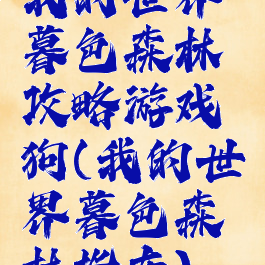 我的世界
暮色森林
攻略游戏
狗(我的世
界暮色森
林